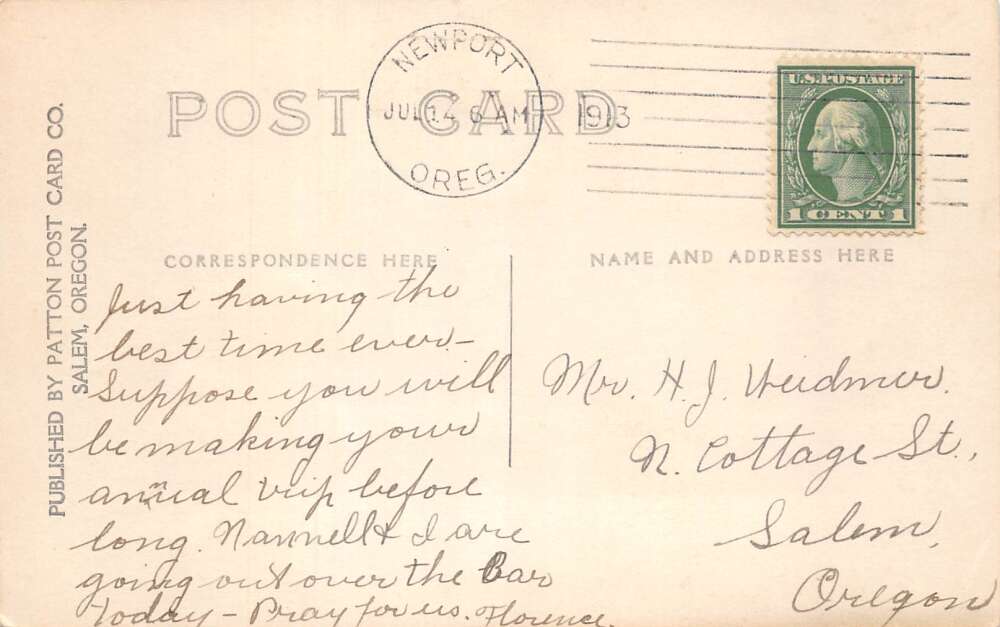 NEWPORT
JUL 14 6 AM 1913
OREG.
U.S. POSTAGE
1 CENT 1
POST CARD
PUBLISHED BY PATTON POST CARD CO.
SALEM, OREGON.
CORRESPONDENCE HERE
NAME AND ADDRESS HERE
Just having the
best time ever -
Suppose you will
be making your
annual trip before
long. Nannell & I are
going out over the Bar
today - Pray for us. Florence.
Mr. H. J. Weidmer.
N. Cottage St.,
Salem,
Oregon